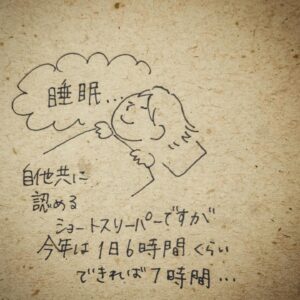 睡眠...
自他共に
認める
ショートスリーパーですが
今年は1日6時間くらい
できれば7時間...